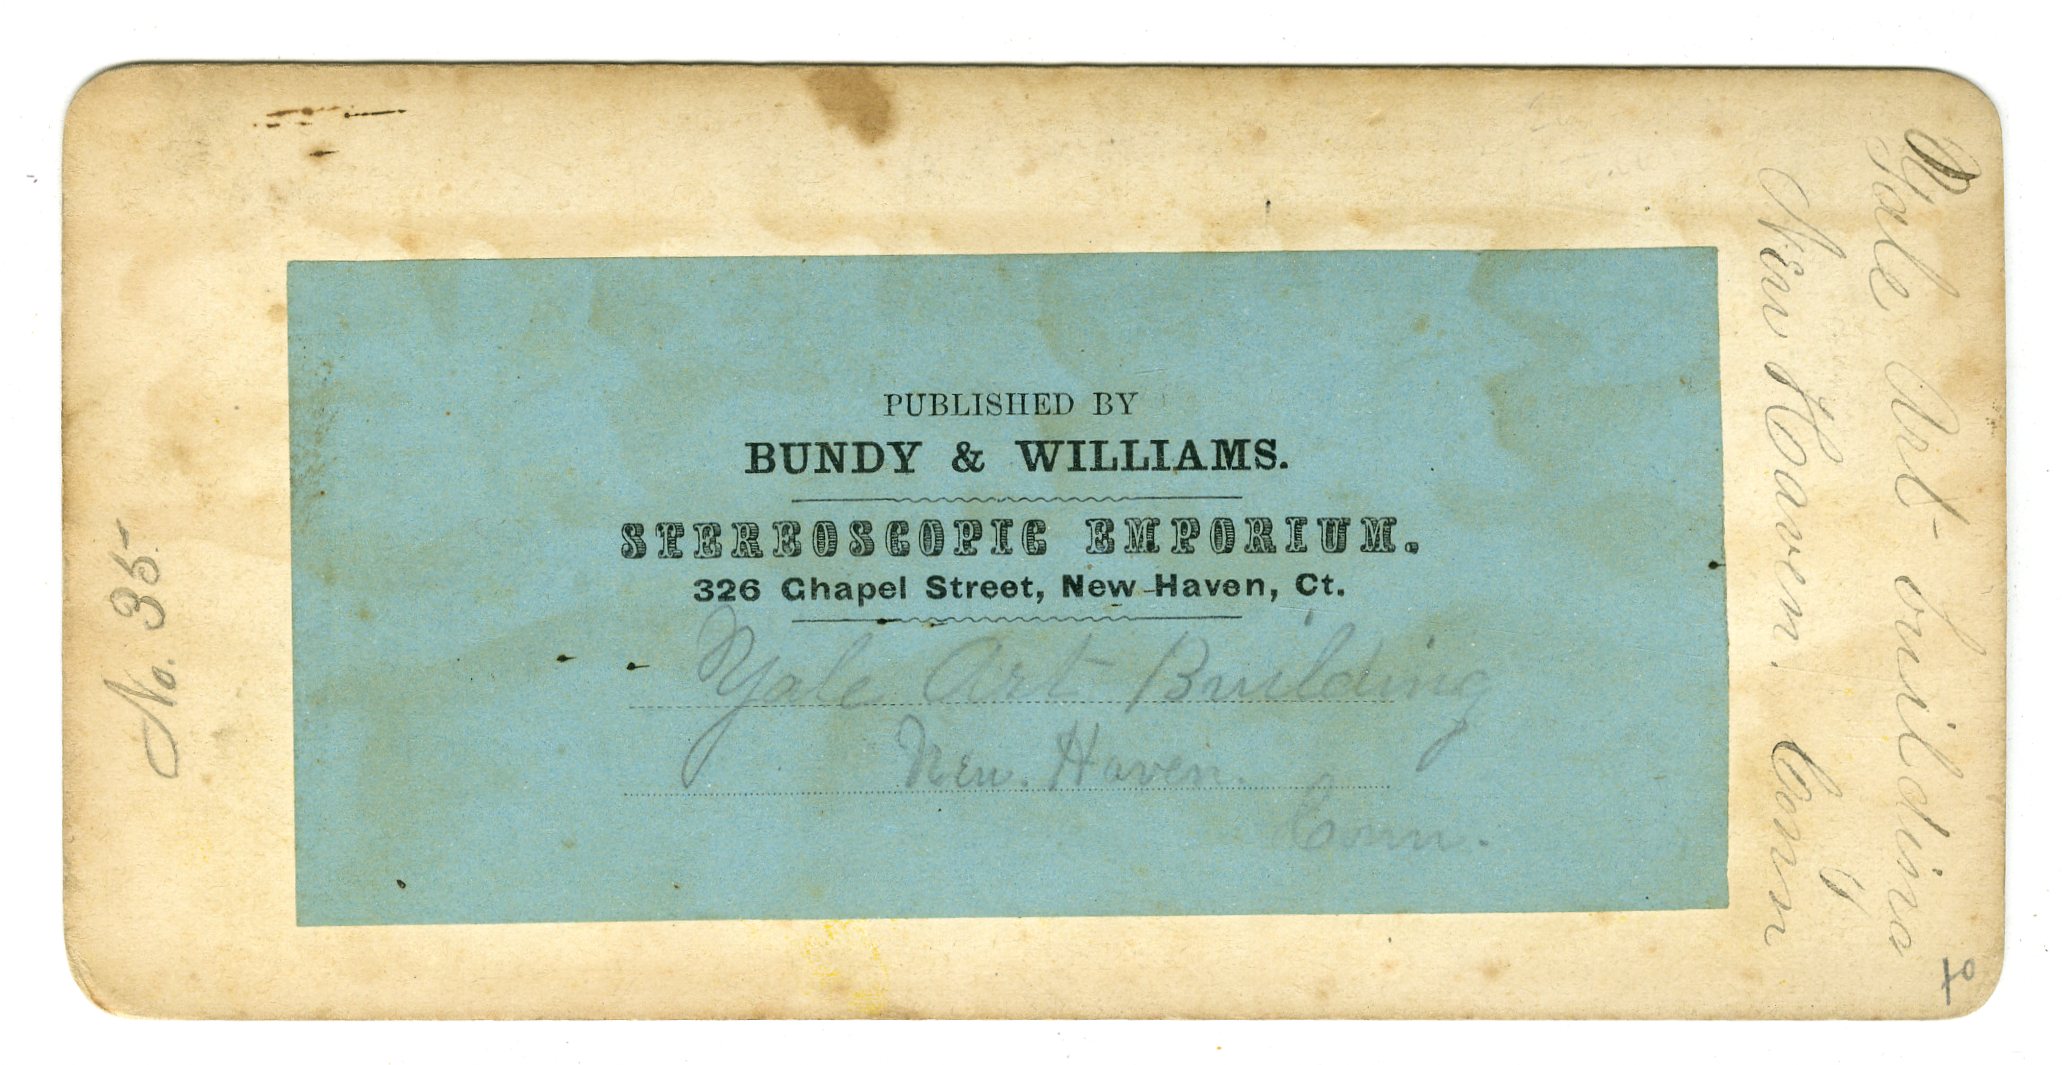 PUBLISHED BY
BUNDY & WILLIAMS.
STEREOSCOPIC EMPORIUM.
326 Chapel Street, New Haven, Ct.
Yale Art Building
New. Haven.
Conn.
No. 35
Yale Art building
New Haven. Conn